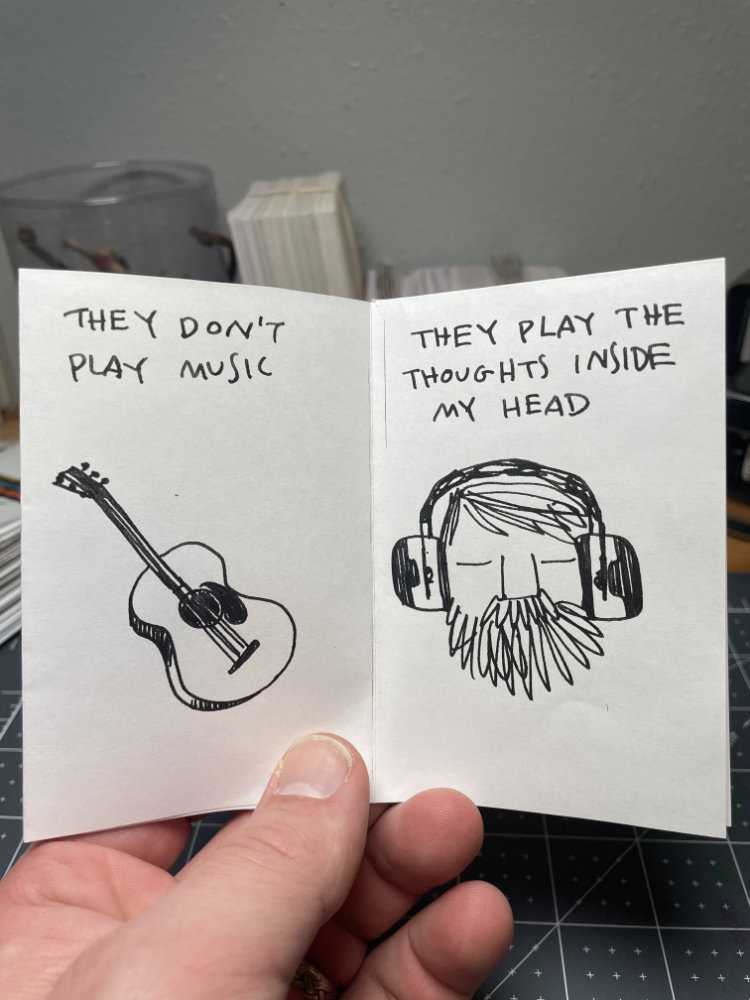 THEY DON'T
PLAY MUSIC
THEY PLAY THE
THOUGHTS INSIDE
MY HEAD